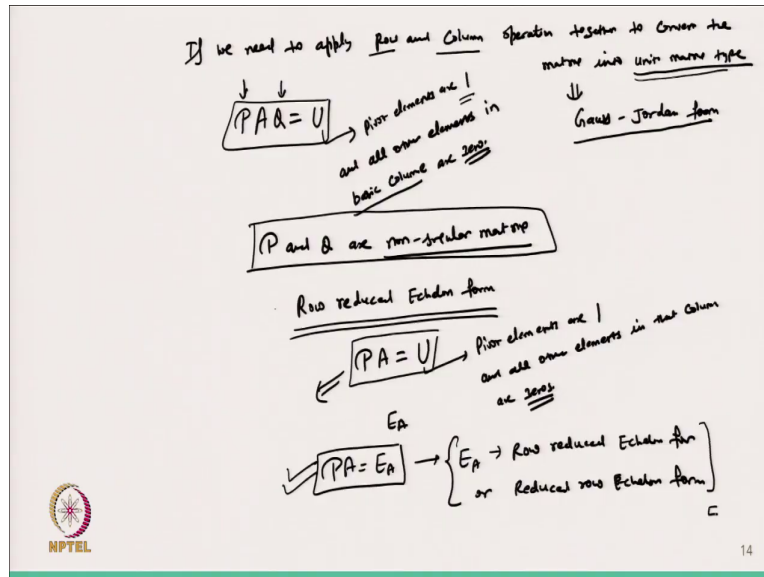 If we need to apply Row and Column operation together to convert the
matrix into unit matrix type
PAQ = U → pivot elements are 1
and all other elements in
basic column are zero.
⇓
Gauss - Jordan form
P and Q are non-singular matrix
Row reduced Echelon form
PA = U → Pivot elements are 1
and all other elements in that column
are zeros
E_A
PA = E_A → { E_A → Row reduced Echelon form
or Reduced row Echelon form ]
NPTEL
14